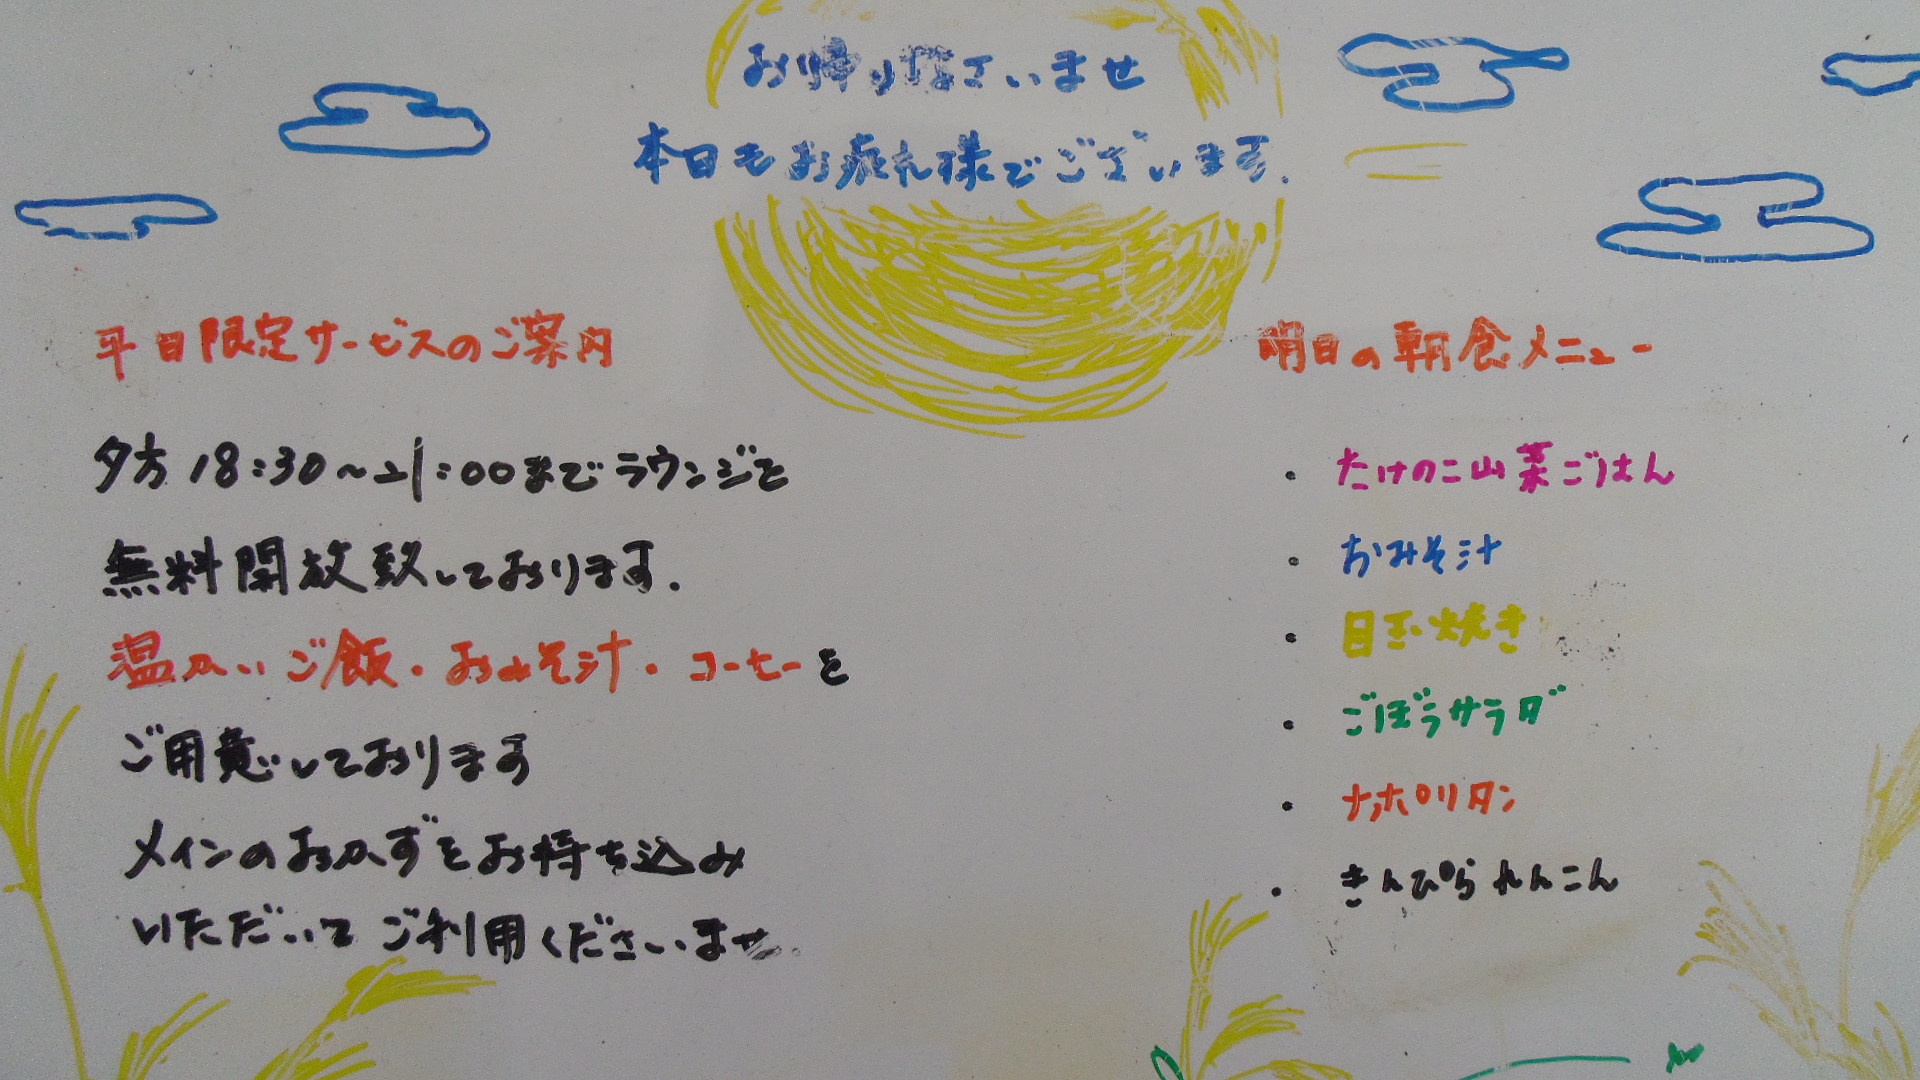 お帰りなさいませ
本日もお疲れ様でございます.
平日限定サービスのご案内
夕方18:30～21:00までラウンジを
無料開放致しております.
温かいご飯・おみそ汁・コーヒーを
ご用意しております
メインのおかずをお持ち込み
いただいてご利用くださいませ.
明日の朝食メニュー
・たけのこ山菜ごはん
・おみそ汁
・目玉焼き
・ごぼうサラダ
・ナポリタン
・きんぴられんこん